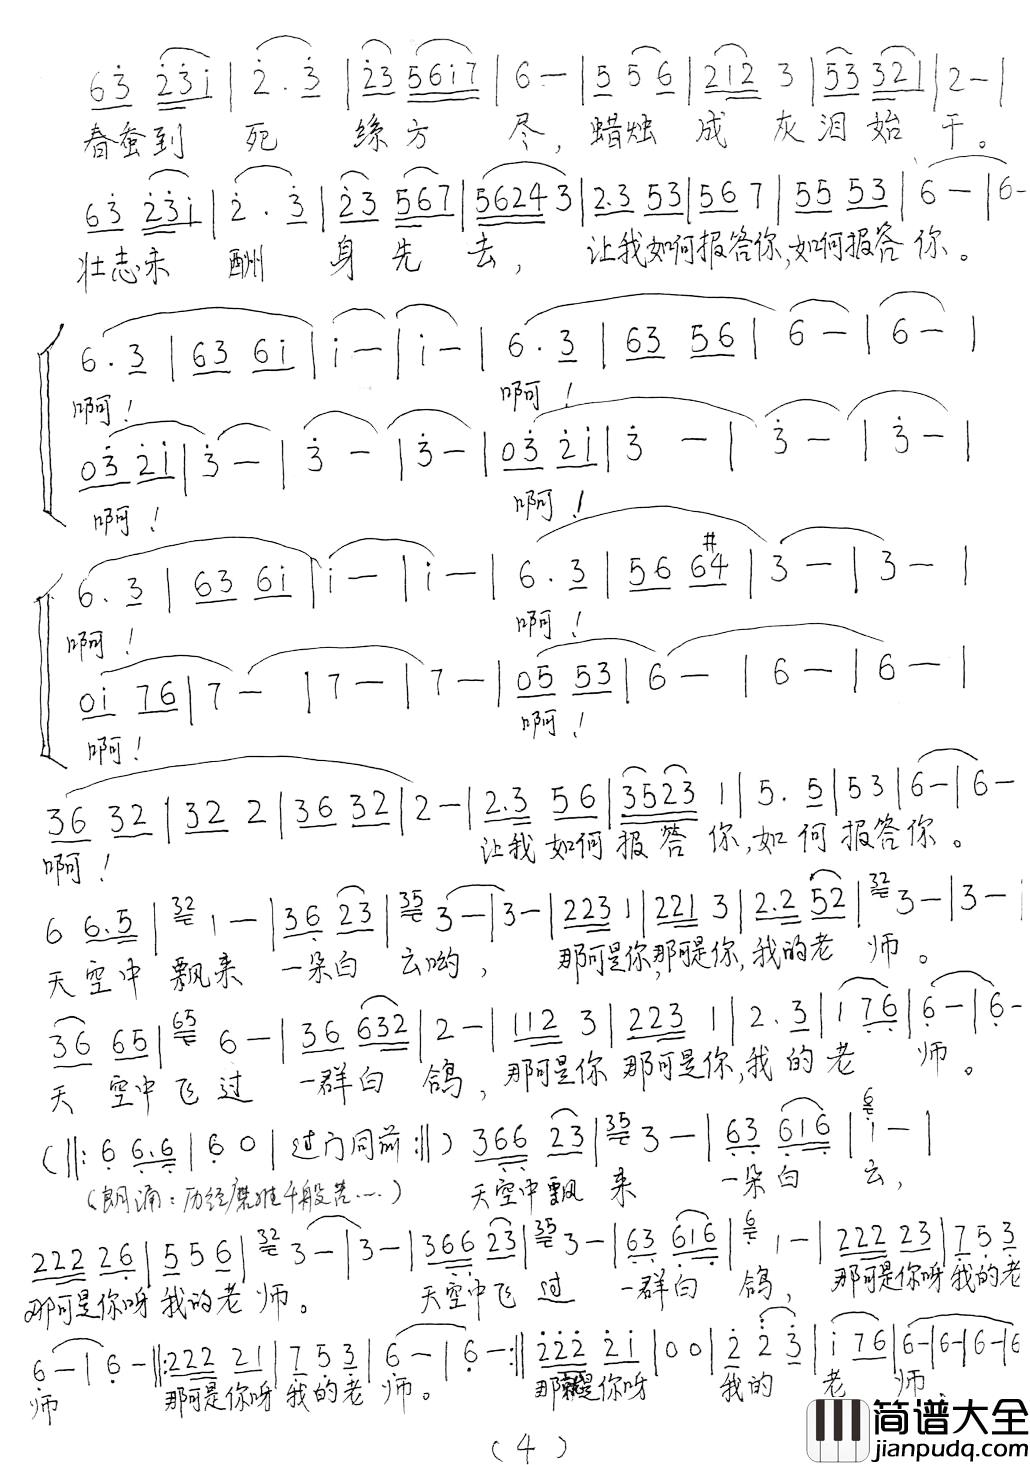 63 231 | 2 . 3 | 23 5617 | 6 — | 5 56 | 212 3 | 53 321 | 2 — |
春蚕到 死 丝方 尽，蜡烛 成 灰泪始 干。
63 231 | 2 . 3 | 23 567 | 5624 3 | 2.3 53 | 56 7 | 55 53 | 6 — | 6 —
壮志未 酬 身先 去， 让我如何报答你，如何报答 你。
6 . 3 | 63 61 | 1 — | 1 — | 6 . 3 | 63 56 | 6 — | 6 — |
啊！ 啊！
03 21 | 3 — | 3 — | 3 — | 03 21 | 3 — | 3 — | 3 — |
啊！ 啊！
6 . 3 | 63 61 | 1 — | 1 — | 6 . 3 | 56 6#4 | 3 — | 3 — |
啊！ 啊！
01 76 | 7 — | 7 — | 7 — | 05 53 | 6 — | 6 — | 6 — |
啊！ 啊！
36 32 | 32 2 | 36 32 | 2 — | 2.3 56 | 3523 1 | 5 . 5 | 53 | 6 — | 6 —
啊！ 让我 如何 报答 你，如 何 报答 你。
6 6.5 | 32 1 — | 36 23 | 35 3 — | 3 — | 223 1 | 221 3 | 2.2 52 | 32 3 — | 3 — |
天空中 飘来 一朵白 云哟， 那可是你，那可是你，我的老 师。
36 65 | 65 6 — | 36 632 | 2 — | 112 3 | 223 1 | 2 . 3 | 1 76 | 6 — | 6 —
天 空中飞过 一群白 鸽，那可是你 那可是你，我 的 老 师。
(‖: 6 6.6 | 6 0 | 过门同前 :‖) 366 23 | 35 3 — | 63 616 | 6 1 — |
（朗诵：历经磨难千般苦……） 天空中飘 来 一朵白 云，
222 26 | 5 56 | 32 3 — | 3 — | 366 23 | 35 3 — | 63 616 | 6 1 — | 222 23 | 7 53
那可是你呀 我的老 师。 天空中飞 过 一群白 鸽，那可是你呀 我的老
6 — | 6 — ‖: 222 21 | 7 53 | 6 — | 6 — :‖ 222 21 | 0 0 | 2 2 3 | 1 76 | 6 — | 6 — | 6 — | 6
师 那可是你呀 我的老 师。 那是你呀 我的 老 师
(4)
简谱大全
jianpudq.com